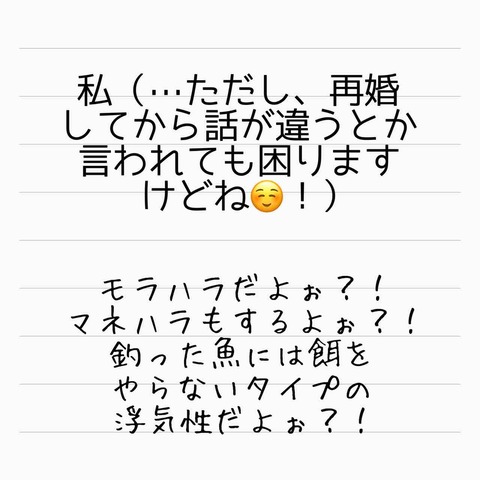 私（…ただし、再婚
してから話が違うとか
言われても困ります
けどね☺️！）
モラハラだよぉ？！
マネハラもするよぉ？！
釣った魚には餌を
やらないタイプの
浮気性だよぉ？！